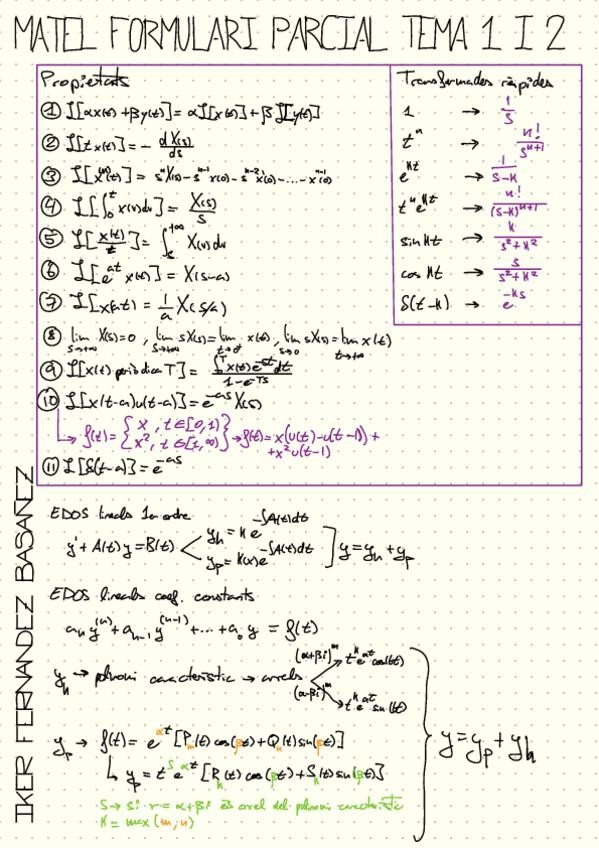 MATEL FORMULARI PARCIAL TEMA 1 I 2
Propietats
① ℒ[αx(t) + βy(t)] = αℒ[x(t)] + βℒ[y(t)]
② ℒ[t x(t)] = - dX(s)/ds
③ ℒ[x⁽ⁿ⁾(t)] = sⁿX(s) - sⁿ⁻¹x(0) - sⁿ⁻²ẋ(0) - ... - xⁿ⁻¹(0)
④ ℒ[∫₀ᵗ x(u)du] = X(s)/s
⑤ ℒ[x(t)/t] = ∫ₛ⁺∞ X(u)du
⑥ ℒ[e^{at} x(t)] = X(s-a)
⑦ ℒ[x(at)] = 1/a X(s/a)
⑧ lim_{s→+∞} X(s) = 0, lim_{s→+∞} sX(s) = lim_{t→0⁺} x(t), lim_{s→0} sX(s) = lim_{t→+∞} x(t)
⑨ ℒ[x(t) periòdica T] = ∫₀ᵀ x(t)e^{-st}dt / 1-e^{-Ts}
⑩ ℒ[x(t-a)u(t-a)] = e^{-as} X(s)
↳ f(t) = { x, t∈[0,1) ; x², t∈[1,∞) } → f(t) = x(u(t)-u(t-1)) +
+x²u(t-1)
⑪ ℒ[δ(t-a)] = e^{-as}
Transformades ràpides
1 → 1/s
tⁿ → n!/s^{n+1}
e^{kt} → 1/s-k
tⁿe^{kt} → n!/(s-k)^{n+1}
sin kt → k/s²+k²
cos kt → s/s²+k²
δ(t-k) → e^{-ks}
EDOS lineals 1r ordre
y' + A(t)y = B(t) < y_h = k e^{-∫A(t)dt} y_p = k(x)e^{-∫A(t)dt} ] y = y_h + y_p
EDOS lineals coef. constants
aₙ y⁽ⁿ⁾ + aₙ₋₁ y⁽ⁿ⁻¹⁾ + ... + a₀ y = f(t)
y_h → polinomi característic → arrels < (α+βi)ᵐ → tᵏe^{αt} cos(βt)
(α-βi)ᵐ → tᵏe^{αt} sin(βt)
y_p → f(t) = e^{αt} [Pₘ(t) cos(βt) + Qₙ(t) sin(βt)]
↳ y_p = tˢ e^{αt} [Rₖ(t) cos(βt) + Sₖ(t) sin(βt)]
S → si r = α + βi és arrel del polinomi característic
K = max (m, n)
y = y_p + y_h
IKER FERNANDEZ BASAÑEZ